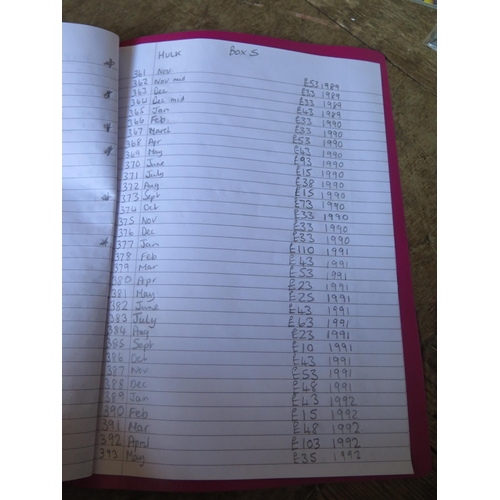 HULK BOX 5
361 Nov £53 1989
362 Nov mid £33 1989
363 Dec £33 1989
364 Dec mid £43 1989
365 Jan £33 1990
366 Feb. £33 1990
367 March £53 1990
368 Apr £43 1990
369 May £93 1990
370 June £15 1990
371 July £38 1990
372 Aug £15 1990
373 Sept £73 1990
374 Oct £33 1990
375 Nov £33 1990
376 Dec £33 1990
377 Jan £110 1991
378 Feb £43 1991
379 Mar £53 1991
380 Apr £23 1991
381 May £25 1991
382 June £43 1991
383 July £63 1991
384 Aug £23 1991
385 Sept £10 1991
386 Oct £43 1991
387 Nov £53 1991
388 Dec £48 1991
389 Jan £43 1992
390 Feb £15 1992
391 Mar £48 1992
392 April £103 1992
393 May £35 1992